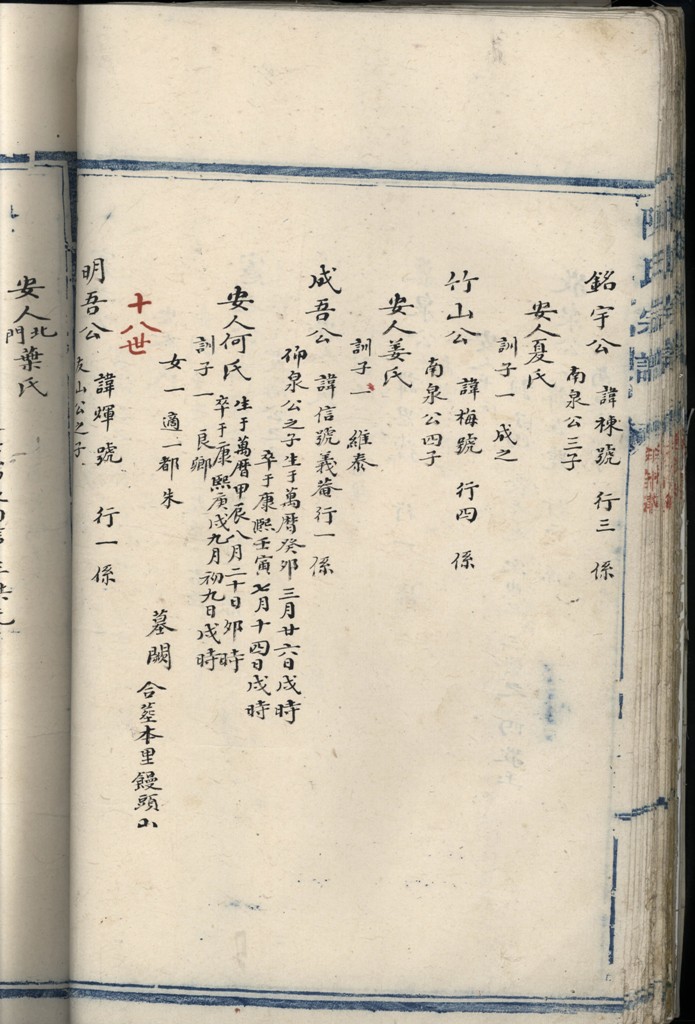 銘宇公 諱棟號 行三 係
南泉公三子
安人夏氏
訓子一 成之
竹山公 諱梅號 行四 係
南泉公四子
安人姜氏
訓子一 維泰
咸吾公 諱信號義菴行一係
仰泉公之子 生于萬曆癸卯三月廿六日戌時
卒于康熙壬寅七月十四日戌時
安人何氏 生于萬曆甲辰八月二十日卯時
卒于康熙庚戌九月初九日戌時
訓子一 良卿
女一 適一都朱
墓闕 合塟本里饅頭山
十八世
明吾公 諱輝號 行一 係
山公之子
安人北門葉氏